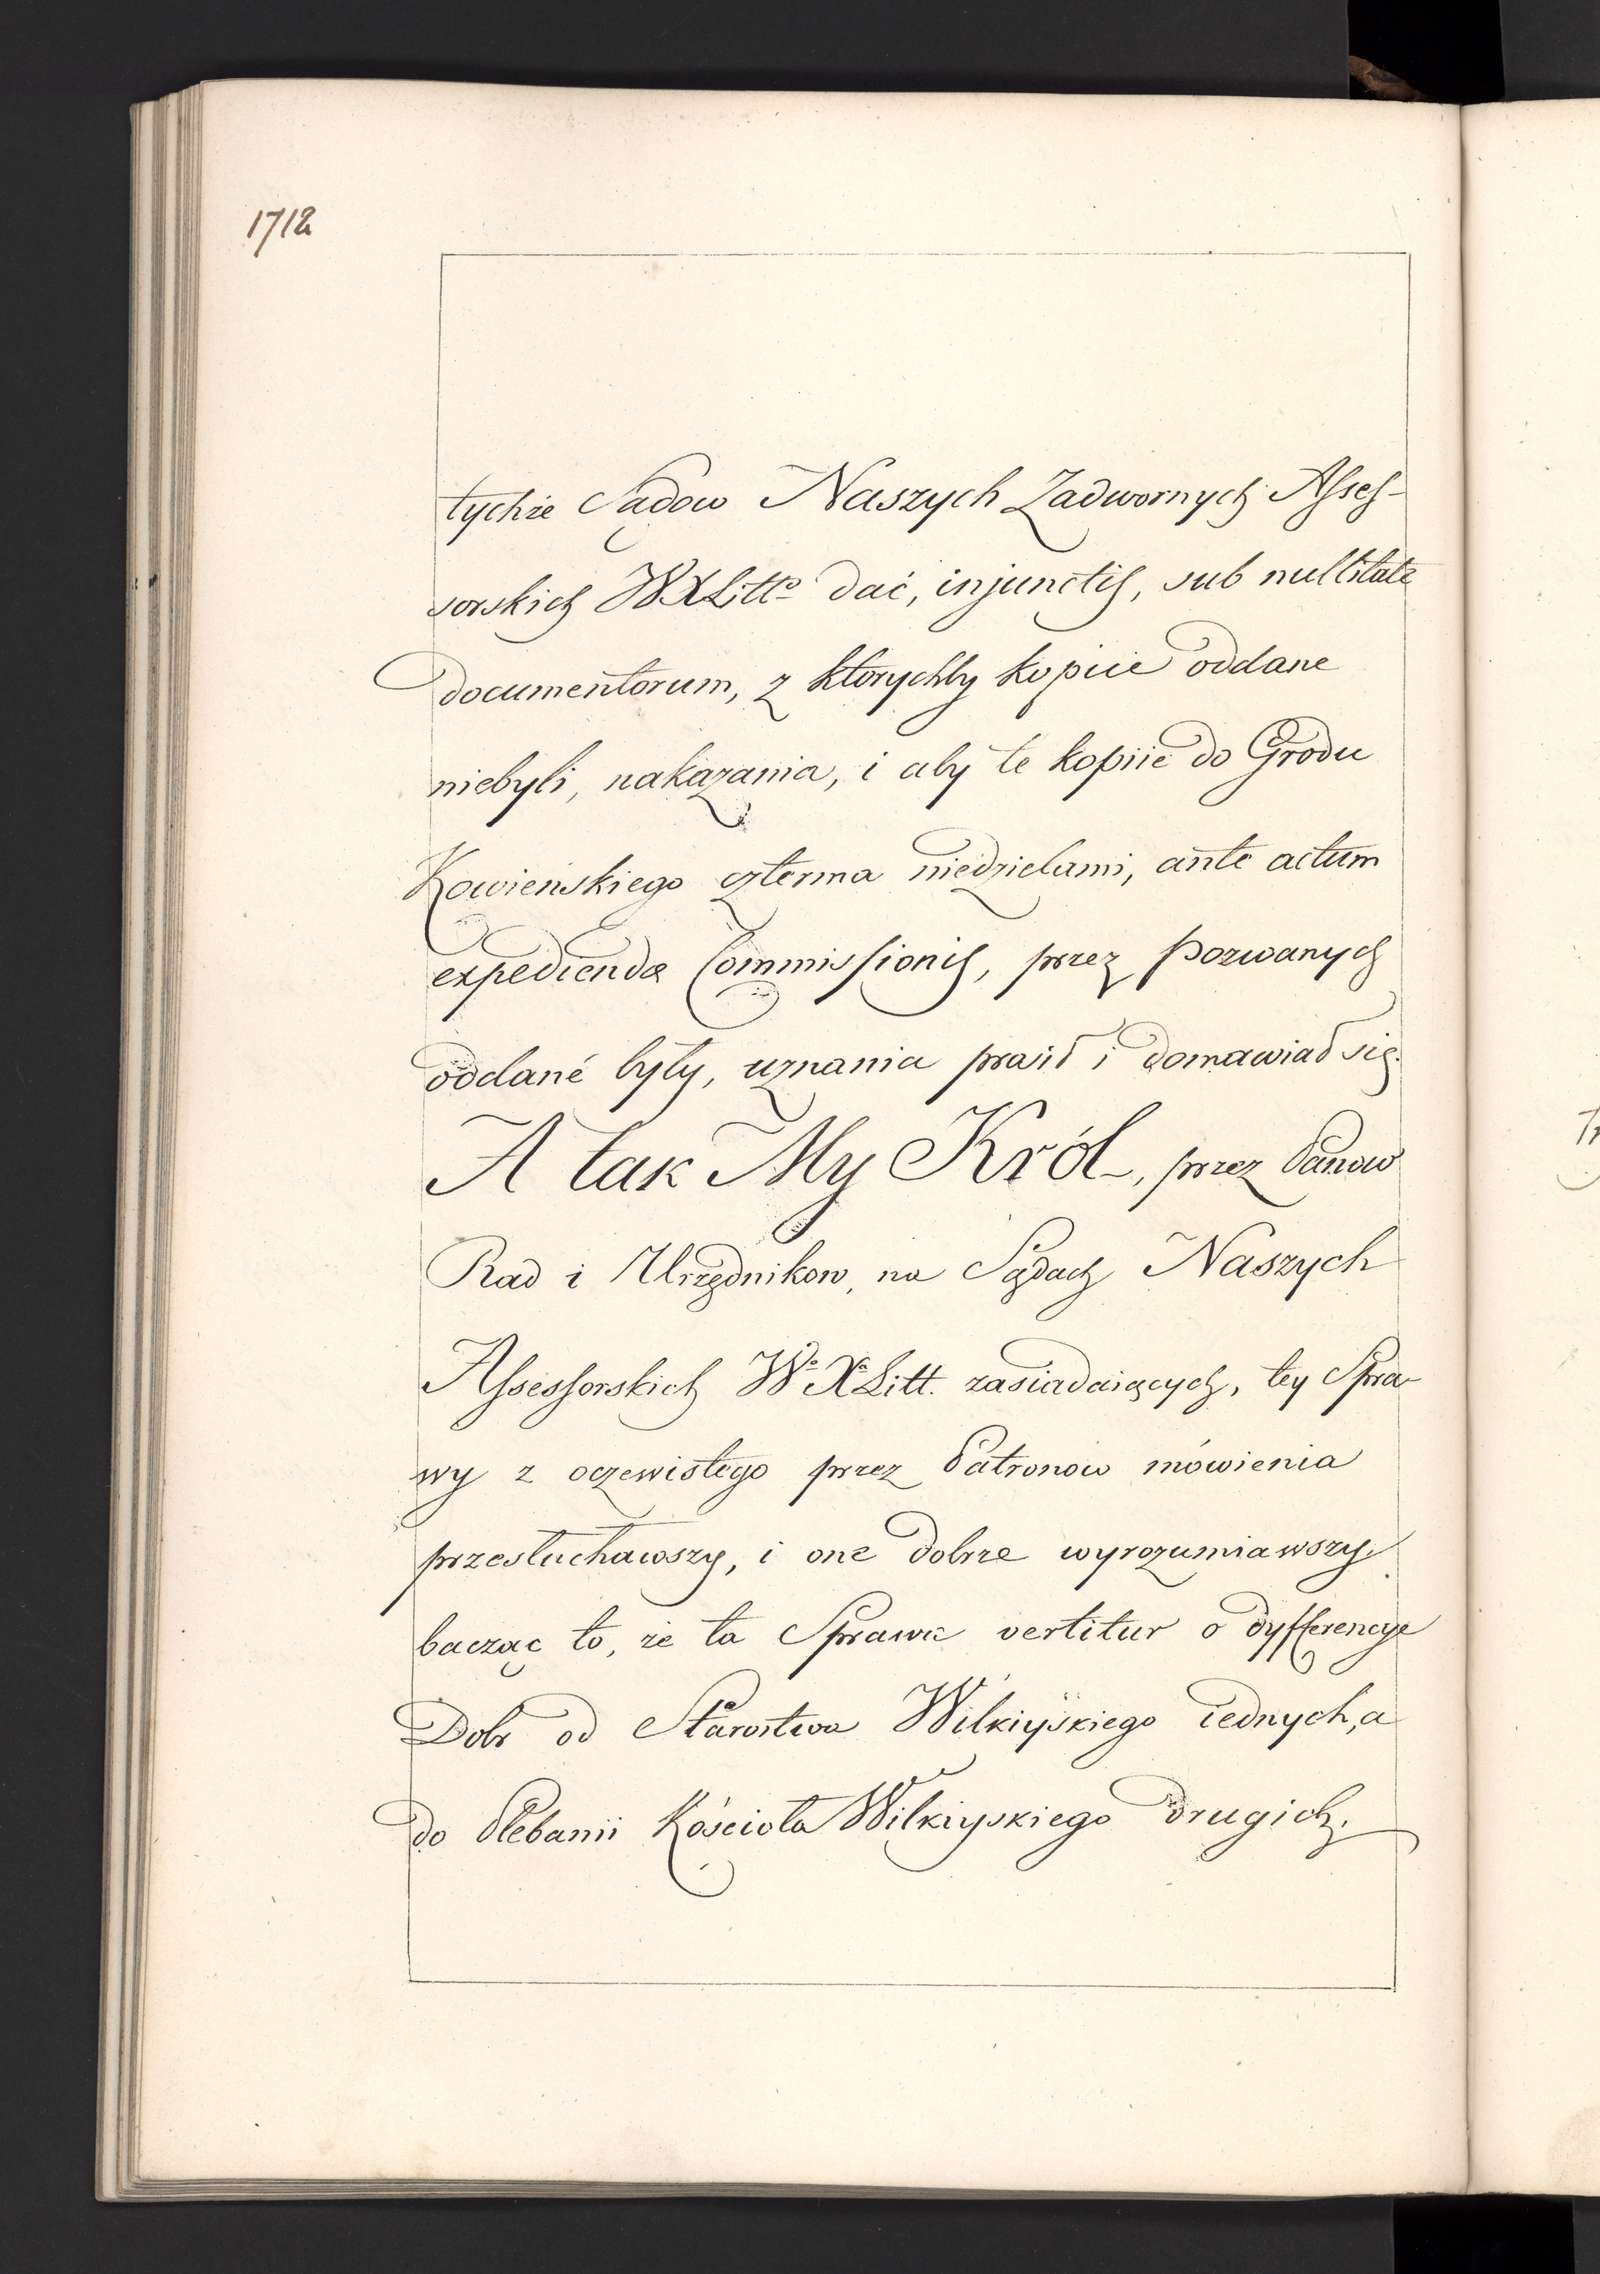 1712
tychże Sądow Naszych Zadwornych Asses-
sorskich WXLittº dać, injunctis, sub nullitate
documentorum, z ktorychby kopiie oddane
niebyli, nakazania, i aby te kopiie do Grodu
Kowienskiego czterma niedzielami, ante actum
expediendæ Commissionis, przez Pozwanych
oddané były, uznania prosił i domawiał się.
A tak My Król, przez Panow
Rad i Urzędnikow, na Sądach Naszych
Assessorskich Wº Xª Litt. zasiadaiących, tey Spra-
wy z oczewistego przez Patronow mówienia
przesłuchawszy, i one dobrze wyrozumiawszy,
bacząc to, że ta Sprawa vertitur o dyfferencye
Dobr od Starostwa Wilkiyskiego iednych, a
do Plebanii Kościoła Wilkiyskiego drugich,